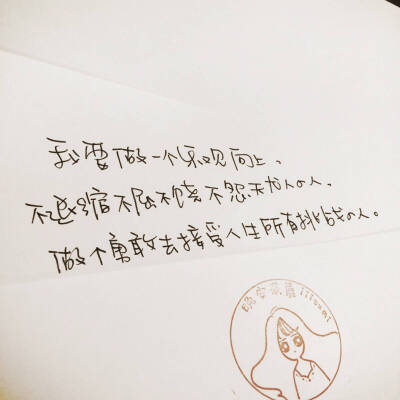 我要做一个乐观向上、
不退缩不屈不挠不怨天尤人の人、
做个勇敢去接受人生所有挑战の人。
晚安